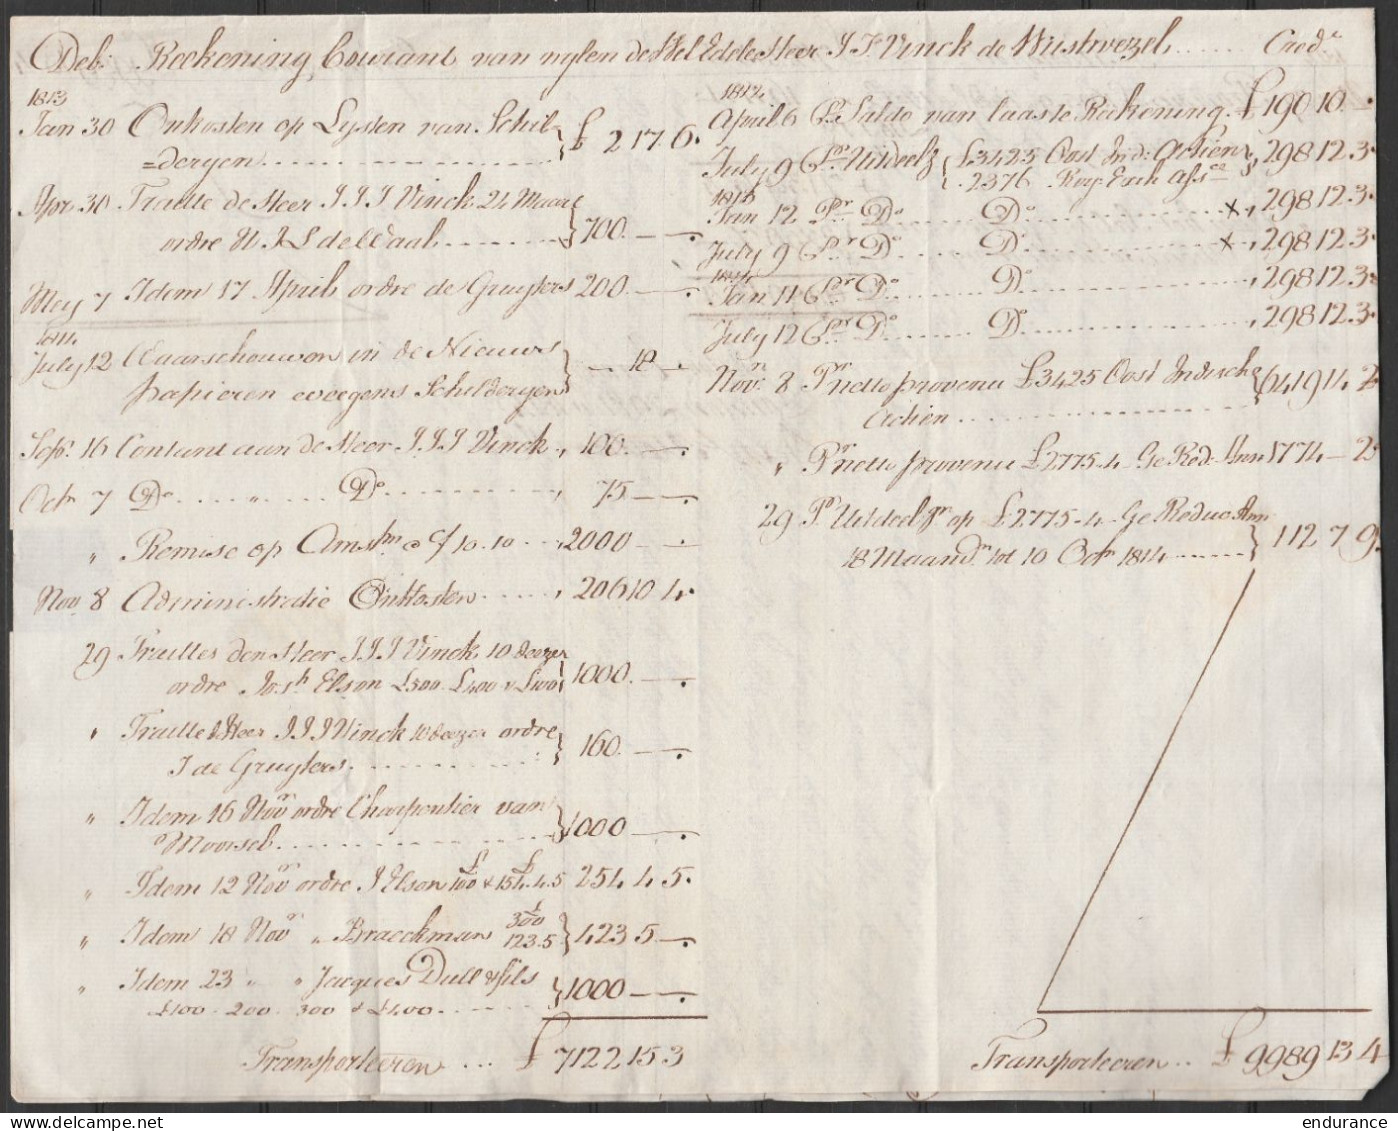 Deb: Reekening Courant van wylen de Wel Edele Heer J J Vinck de Wustwezel ...... Cred.r
1813
Jan 30 Onkosten op Lysten van Schil-
=deryen ........ } £ 2 17 6.
Apr 30 Traitte de Heer J J J Vinck 24 Maart
ordre H. J L de Waal ........ } 700. — .
Mey 7 Idem 17 April ordre de Gruyters 200 — .
1814
July 12 Waarschouwen in de Nieuws
papieren weegens Schilderyen } — 18 — .
Sepr 16 Contant aan de Heer J. J. J Vinck , 100. — .
Octr 7 Do ........ Do ........ , 75 — .
" Remise op Amstm a C/ 10.10 .. , 2000 — .
Nov. 8 Administratie Onkosten ..... , 206 10 4.
29 Traittes den Heer J J J Vinck 10 deezer
ordre Josh Elson £500. £400 & £100 } 1000. — .
" Traitte d Heer J J J Vinck 10 deezer ordre
J de Gruyters. ........ } 160. — .
" Idem 16 Novr ordre Charpentier van
Moorsel. ........ } 1000 — .
" Idem 12 Novr ordre J Elson £100 & £154. 4. 5 254 4 5.
" Idem 18 Novr " Braeckman £300 123.5 } 423 5 — .
" Idem 23 " " Jacques Dull & fils
£400. 200. 300 & £100. ....... } 1000 — .
Transporteeren ... £ 7122 15 3
1812
April 6 Pr Saldo van laaste Reekening. £ 190 10 — .
July 9 6 Pr Uitdeelg { £3425 Oost Ind: Actien
. 2376 Roy. Exch Assce } , 298 12. 3.
1813
Jan 12 Pr Do ........ Do ........ x , 298 12. 3.
July 9 6 Pr Do ........ Do ........ x , 298 12. 3.
1814
Jan 11 6 Pr Do ........ Do ........ , 298 12. 3.
July 12 6 Pr Do ........ Do ........ , 298 12. 3.
Novr 8 Pr netto provenu £3425 Oost Indische
Actien ........ } 6419 14 2
" Pr netto provenu £2775-4 Ge Red: Ann 1774 — 2
29 Pr Uitdeelgr op £2775-4. Ge Reduc Ann
18 Maandn tot 10 Octr 1814 ....... } 112 7 9.
Transporteeren .. £ 9989 13 4
endurance